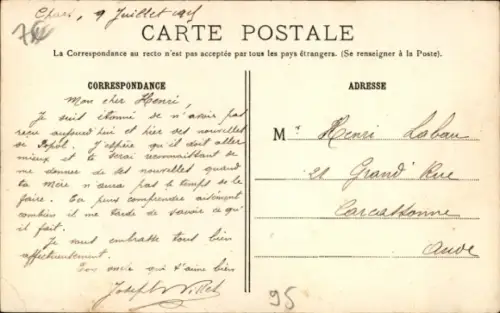 9 Juillet
CARTE POSTALE
La Correspondance au recto n'est pas acceptée par tous les pays étrangers. (Se renseigner à la Poste).
CORRESPONDANCE
Mon cher Henri,
Je suis étonné de n'avoir pas
reçu aujourd'hui et hier des nouvelles
de Popol. J'espère qu'il doit aller
mieux et te serai reconnaissant de
me donner de ses nouvelles quand
ta mère n'aura pas le temps de le
faire. Tu peux comprendre aisément
combien il me tarde de savoir ce qu'
il fait.
Je vous embrasse tous bien
affectueusement.
Ton oncle qui t'aime bien
Joseph
ADRESSE
Mr Henri Laban
21 Grand' Rue
Carcassonne
Aude
95